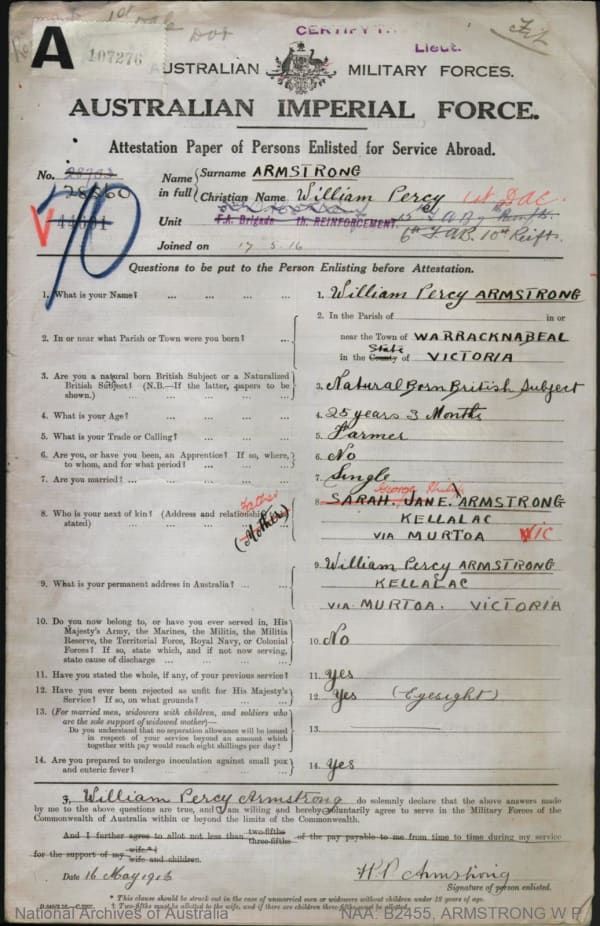 1st
A
107276
CERTIFY
Lieut.
AUSTRALIAN MILITARY FORCES.
AUSTRALIAN IMPERIAL FORCE.
Attestation Paper of Persons Enlisted for Service Abroad.
No. 28702
28860
70
V
Name in full { Surname ARMSTRONG
Christian Name William Percy 1st DAC.
Unit F.A. Brigade th. REINFORCEMENT.
6th FAB. 10th Reifts.
Joined on 17 5 16
Questions to be put to the Person Enlisting before Attestation.
1. What is your Name? ... ... ... ... 1. William Percy ARMSTRONG
2. In or near what Parish or Town were you born? ... 2. In the Parish of in or
near the Town of WARRACKNABEAL
State
in the County of VICTORIA
3. Are you a natural born British Subject or a Naturalized
British Subject? (N.B.—If the latter, papers to be
shown.) ... ... ... ... 3. Natural Born British Subject
4. What is your Age? ... ... ... ... 4. 25 years 3 Months
5. What is your Trade or Calling? ... ... ... 5. Farmer
6. Are you, or have you been, an Apprentice? If so, where,
to whom, and for what period? ... ... ... 6. No
7. Are you married? ... ... ... ... 7. Single
Father George
8. Who is your next of kin? (Address and relationship to be
stated) ... ... (Mother) 8. SARAH. JANE. ARMSTRONG
KELLALAC
VIA MURTOA VIC
9. What is your permanent address in Australia? ... ... 9. William Percy ARMSTRONG
KELLALAC
VIA MURTOA. VICTORIA
10. Do you now belong to, or have you ever served in, His
Majesty's Army, the Marines, the Militia, the Militia
Reserve, the Territorial Force, Royal Navy, or Colonial
Forces? If so, state which, and if not now serving,
state cause of discharge ... ... ... 10. No
11. Have you stated the whole, if any, of your previous service? 11. yes
12. Have you ever been rejected as unfit for His Majesty's
Service? If so, on what grounds? ... ... 12. Yes (Eyesight)
13. (For married men, widowers with children, and soldiers who
are the sole support of widowed mother)—
Do you understand that no separation allowance will be issued
in respect of your service beyond an amount which
together with pay would reach eight shillings per day? 13.
14. Are you prepared to undergo inoculation against small pox
and enteric fever? ... ... ... ... 14. yes
I, William Percy Armstrong do solemnly declare that the above answers made
by me to the above questions are true, and I am willing and hereby voluntarily agree to serve in the Military Forces of the
Commonwealth of Australia within or beyond the limits of the Commonwealth.
And I further agree to allot not less than two-fifths three-fifths of the pay payable to me from time to time during my service
for the support of my wife*† wife and children.
Date 16 May 1916 W P Armstrong
Signature of person enlisted.
* This clause should be struck out in the case of unmarried men or widowers without children under 18 years of age.
† Two-fifths must be allotted to the wife, and if there are children three-fifths must be allotted.
National Archives of Australia NAA: B2455, ARMSTRONG W P